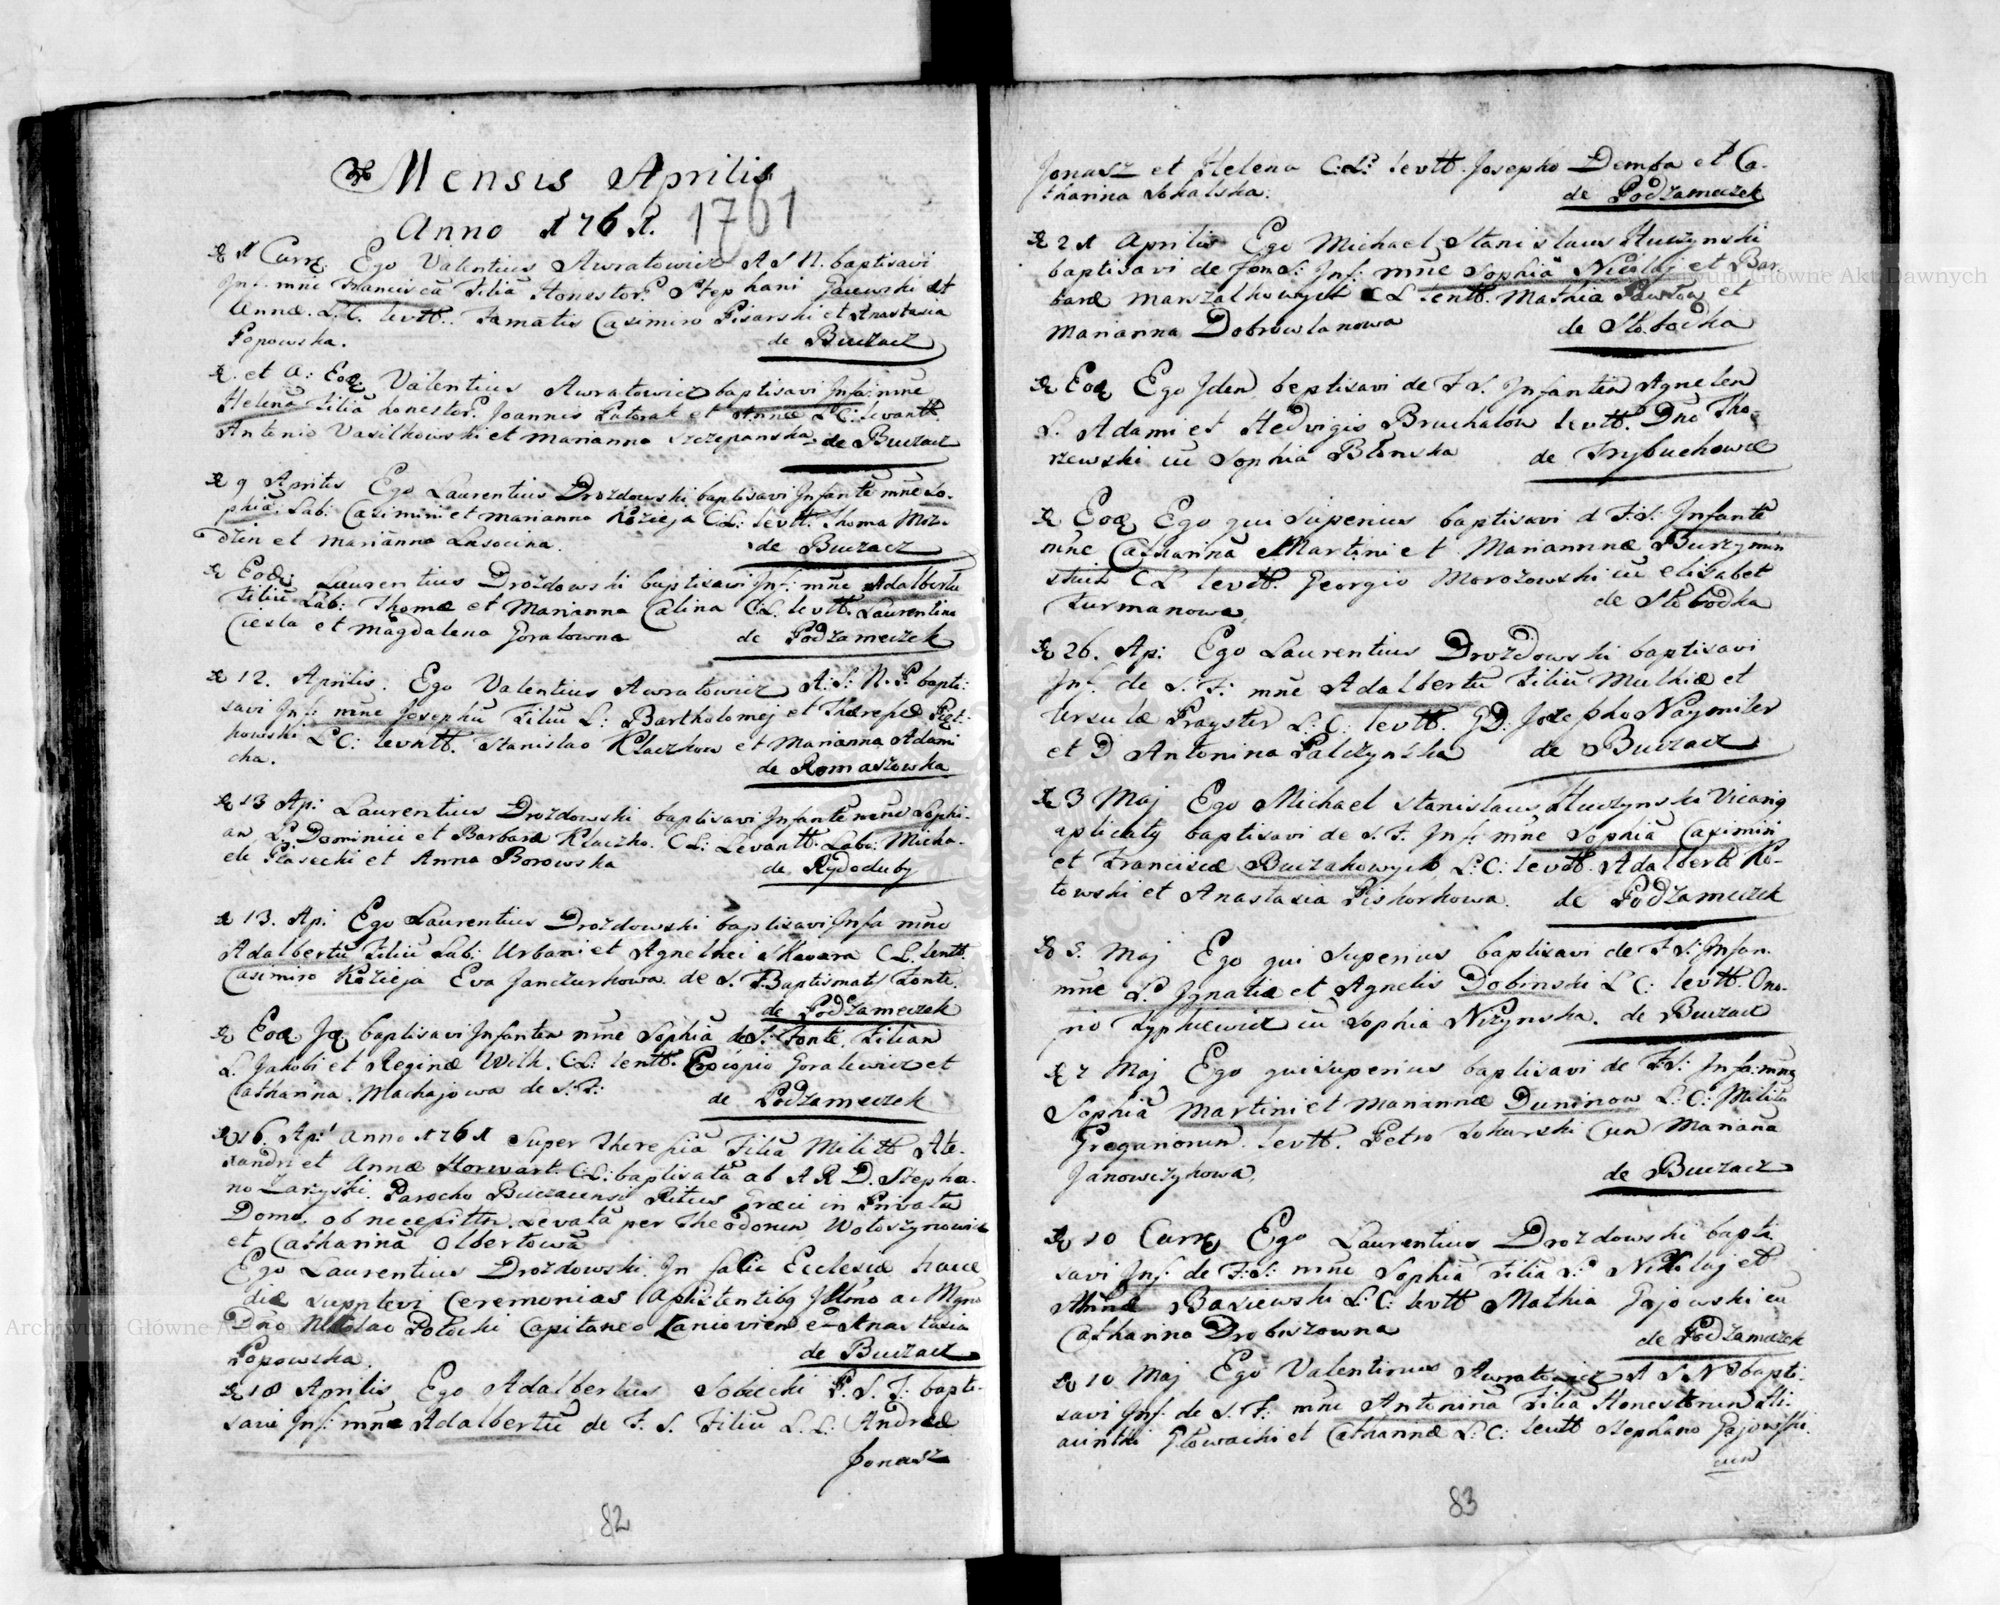 Mensis Aprilis
Anno 1761. 1761
1 Curr Ego Valentius Awratowicz A S N. baptisavi
Inf. mñe Franciscã Filiã Honestor. Stephani Gaiewski et
Annæ. L. C. levtt. Famatis Casimiro Pisarski et Anastasia
Popowska. de Buczacz
et a: Eod. Valentius Awratowicz baptisavi Infa: mñe
Helenã Filiã honestor. Joannis Patorak et Annæ L C: levantt.
Antonio Vasilkowski et Marianna Szczepanska de Buczacz
9 Aprilis Ego Laurentius Drozdowski baptisavi Infantẽ mñe So-
phiã. Lab: Casimiri et Marianna Kozieja C:L: levtt. Thoma Mozi-
dzen et Marianna Lasocina. de Buczacz
Eod. Laurentius Drozdowski baptisavi Inf: mñe Adalbertũ
Filiũ Lab: Thomæ et Marianna Calina C:L. levtt. Laurentino
Ciesla et Magdalena Goralowna de Podzameczek
12. Aprilis. Ego Valentius Awratowicz A: S: N. P. bapti-
savi Inf: mñe Josephũ Filiũ L: Bartholomej et Theresiæ Piet-
kowski L C: levatt. Stanislao Klaczkow et Marianna Adami
cha. de Romaszowka
13 Ap: Laurentius Drozdowski baptisavi Infantẽ mñe Sophi-
an L: Dominici et Barbaræ Klaczko. C L: Levantt. Labo: Micha-
ele Piasecki et Anna Borowska de Rydoduby
13. Ap: Ego Laurentius Drozdowski baptisavi Infa mñe
Adalbertũ Filiũ Lab: Urbani et Agnethei Skawara C L. levtt.
Casimiro Kozieja Eva Janczurkowa de S. F. Baptismatis Fonte.
de Podzameczek
Eod Id baptisavi Infanten mñe Sophiã de S: Fonte, Filian
L. Jakobi et Reginæ Wilk. C:L: levtt. Procopio Goralewicz et
Catharina. Machajowa de S: F: de Podzameczek
16. Ap: Anno 1761 Super Theresiã Filiã Militt Ale-
xandri et Annæ Horwart C:L: baptisatã ab A R D. Stepha-
no Zarzyski. Parocho Buczacensi Ritus Græci in Privata
Domo. ob necessittẽ. Levatã per Theodorum Wotoszynowicz
et Catharinã Olbertowã
Ego Laurentius Drozdowski. In facie Ecclesiæ hacce
die supplevi Ceremonias Assistentibq Illmo ac Mgno
Dño Nicolao Potocki Capitaneo Canioviensi et Anastasia
Popowska. de Buczacz
18 Aprilis Ego Adalbertus Sobecki P. S. T: bapti-
savi Inf: mñe Adalbertũ de F. S. Filiũ L. L: Andreæ
Jonasz
82
Jonasz et Helena C:L: levtt. Josepho Demba et Ca-
tharina Sokalska. de Podzameczek
21 Aprilis Ego Michael Stanislaus Huczynski
baptisavi de fon S: Inf: mñe Sophiã Nicolaj et Bar-
baræ Marszalkowych C L levtt. Mathia Pawlow et
Marianna Dobrowlanowa de Słobodka
Eod Ego Iden beptisavi de F. S. Infantem Agneten
L. Adami et Hedvigis Bruchalow levtt. Dño Sko-
rzewski cũ Sophia Blonska de Trybuchowce
Eod Ego qui Superius baptisavi d F: S: Infantẽ
mñe Catharinã Martini et Mariannæ Burzymin
skich C L levtt. Georgio Morozowski cũ Elisabet
Furmanowa, de Słobodka
26. Ap: Ego Laurentius Drozdowski baptisavi
Inf. de S. F: mñe Adalbertũ Filiũ Mathiæ et
Ursulæ Prayster L: C: levtt. GD: Josepho Naymiler
et D Antonina Palczynska de Buczacz
3 Maj Ego Michael Stanislaus Huczynski Vicariq
aplicatq baptisavi de S. F. Inf: mñe Sophiã Casimiri
et Franciscæ Buczakowych L: C: levtt. Adalberto Ko-
towski et Anastasia Piskorkowa. de Podzameczek
5. Maj Ego qui Superius baptisavi de F S: Infan.
mñe S. Ignatiæ et Agnetis Dobinski L C: levtt. Ono-
frio Zyphiewicz cũ Sophia Nizynska. de Buczacz
7 Maj Ego qui Superius baptisavi de F S: Infa: mñe
Sophiã Martini et Mariannæ Duninow L: C: Militũ
Greganorum. levtt. Petro Sokurski Cum Mariana
Janowczykowa, de Buczacz
10 Curr Ego Laurentius Drozdowski bapti
savi Inf: de F: S: mñe Sophiã Filiã L: Nikolaj et
Annæ Baziewski L: C: levtt Mathia Gajowski cũ
Catharina Drobiszowna de Podzameczek
10 Maj Ego Valentinus Awratowicz A S N P bapti-
savi Inf. de S. F: mñe Antoninã Filiã Honestorum Hi-
acinthi Głowacki et Catharinæ L: C: levtt Stephano Gajowski.
cum
83
Archiwum Główne Akt Dawnych
Archiwum Główne Akt Dawnych